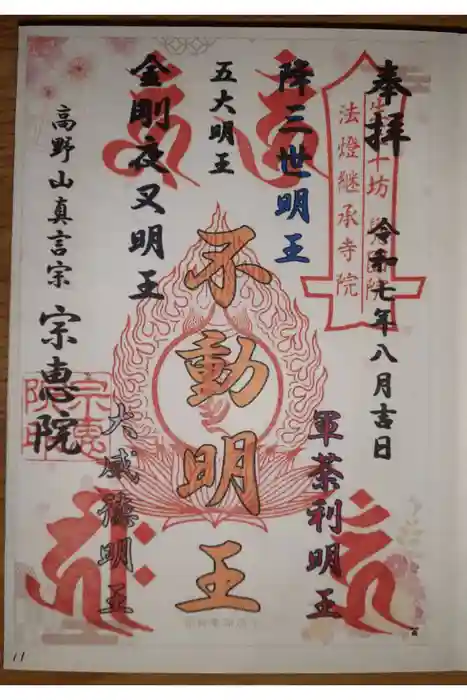 奉拝
法燈継承寺院
令和七年八月吉日
降三世明王
軍荼利明王
五大明王
不動明王
金剛夜叉明王
大威徳明王
高野山真言宗 宗恵院
11